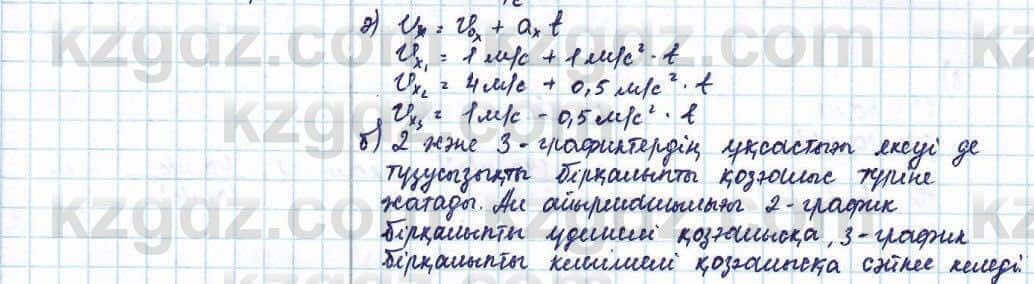 д) Vx = V0x + ax t
Vx1 = 1 м/с + 1 м/с² · t
Vx2 = 4 м/с + 0,5 м/с² · t
Vx3 = 1 м/с - 0,5 м/с² · t
б) 2 және 3-графиктердің ұқсастығы екеуі де
түзусызықты бірқалыпты қозғалыс түріне
жатады. Ал айырмашылығы 2-график
бірқалыпты үдемелі қозғалысқа, 3-график
бірқалыпты кемімелі қозғалысқа сәйкес келеді.
kzgdz.com